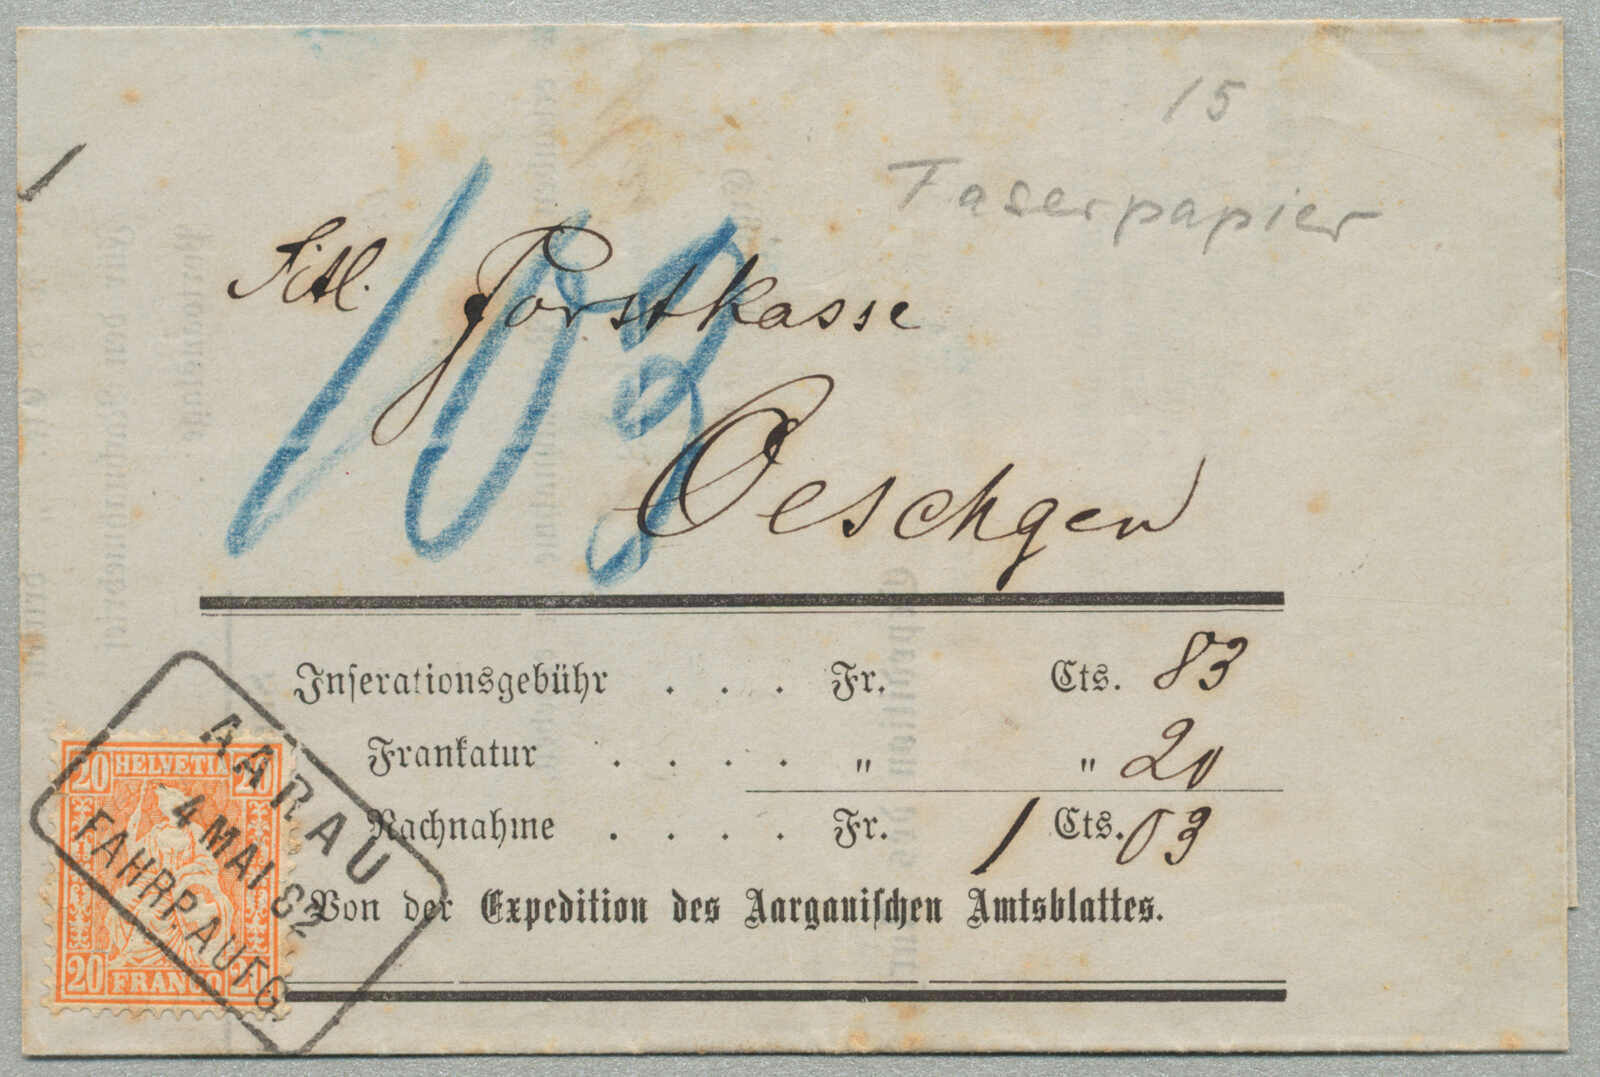 15
Faserpapier
103
Titl. Forstkasse
Oeschgen
Inserationsgebühr . . . Fr. Cts. 83
Frankatur . . . . " " 20
Nachnahme . . . . Fr. 1 Cts. 03
Von der Expedition des Aargauischen Amtsblattes.
20 HELVETIA 20
20 FRANCO 20
AARAU
4 MAI 82
FAHRP. AUFG.